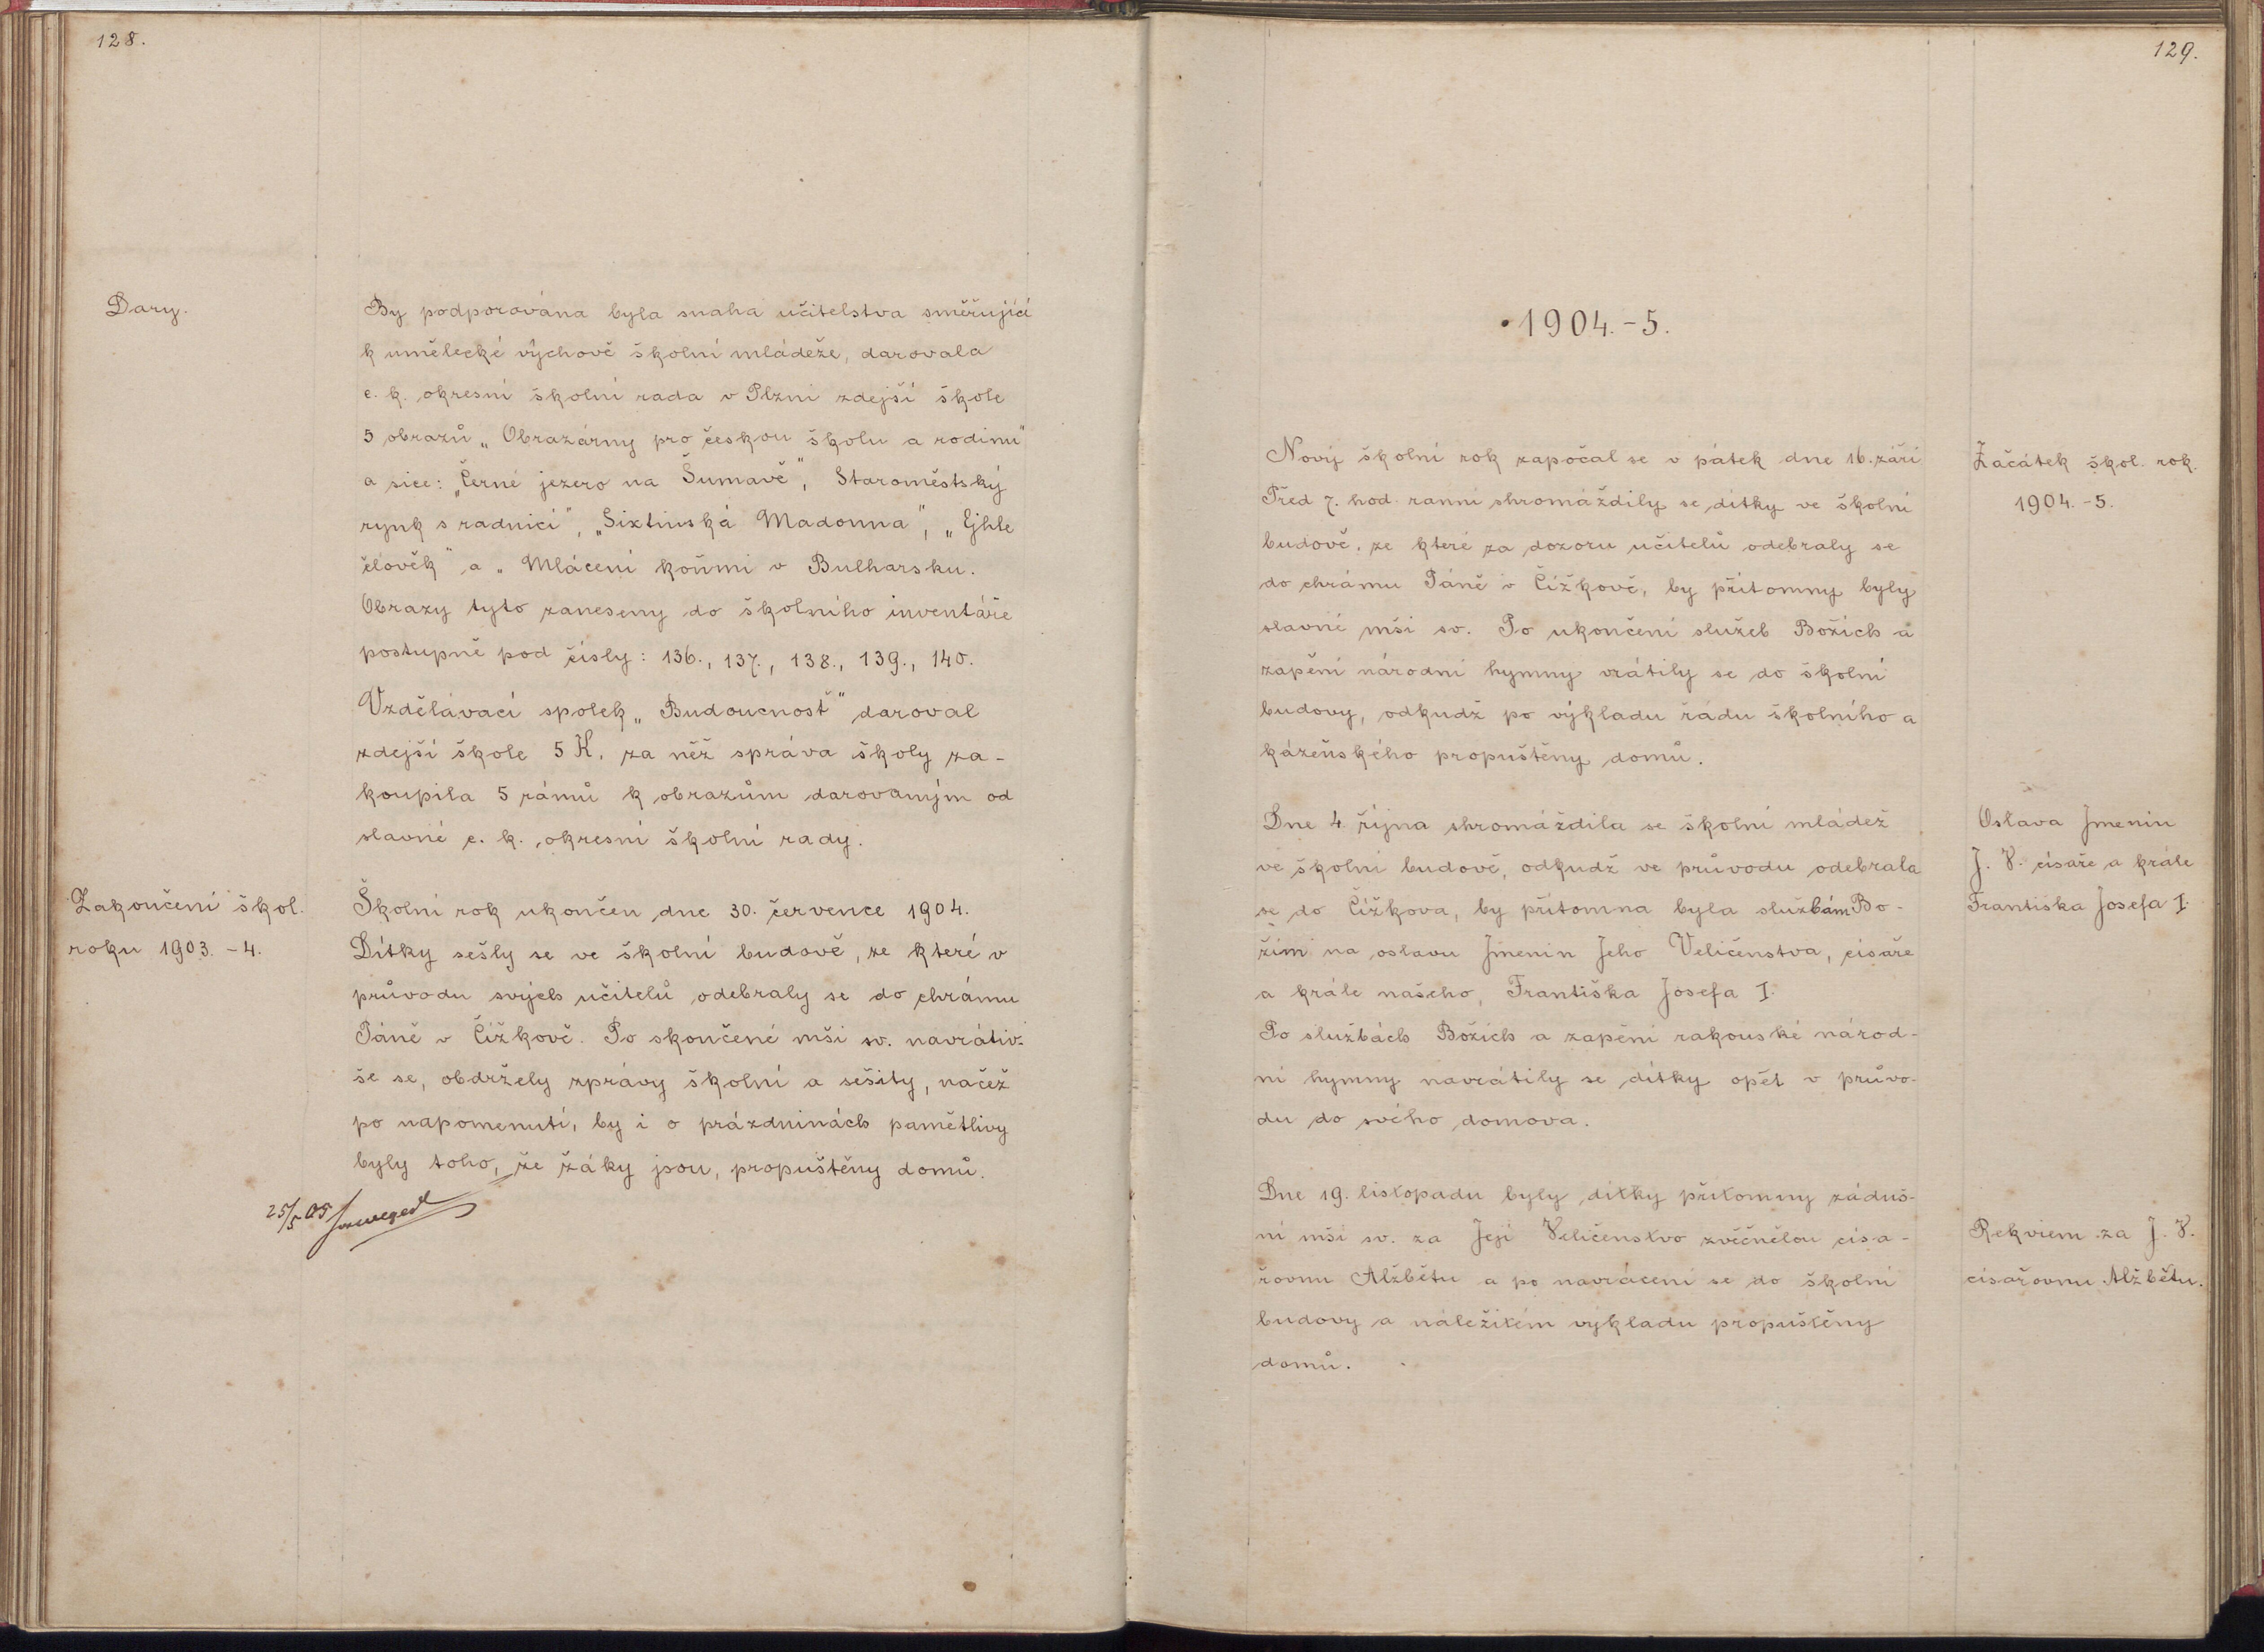 128.
Dary.
By podporována byla snaha učitelstva směřující
k umělecké výchově školní mládeže, darovala
c. k. okresní školní rada v Plzni zdejší škole
5 obrazů „Obrazárny pro českou školu a rodinu"
a sice: „Černé jezero na Šumavě", Staroměstský
rynk s radnicí", „Sixtinská Madonna", „Ejhle
člověk" a „Mlácení koňmi v Bulharsku.
Obrazy tyto zaneseny do školního inventáře
postupně pod čísly: 136., 137., 138., 139., 140.
Vzdělávací spolek „Budoucnosť" daroval
zdejší škole 5 K, za něž správa školy za-
koupila 5 rámů k obrazům darovaným od
slavné c. k. okresní školní rady.
Zakončení škol.
roku 1903. - 4.
Školní rok ukončen dne 30. července 1904.
Dítky sešly se ve školní budově, ze které v
průvodu svých učitelů odebraly se do chrámu
Páně v Čížkově. Po skončené mši sv. navrátiv-
še se, obdržely zprávy školní a sešity, načež
po napomenutí, by i o prázdninách pamětlivy
byly toho, že žáky jsou, propuštěny domů.
25/5 05
129.
1904. - 5.
Nový školní rok započal se v pátek dne 16. září
Před 7. hod. ranní shromáždily se dítky ve školní
budově, ze které za dozoru učitelů odebraly se
do chrámu Páně v Čížkově, by přítomny byly
slavné mši sv. Po ukončení služeb Božích a
zapění národní hymny vrátily se do školní
budovy, odkudž po výkladu řádu školního a
kázeňského propuštěny domů.
Začátek škol. rok.
1904. - 5.
Dne 4. října shromáždila se školní mládež
ve školní budově, odkudž ve průvodu odebrala
se do Čížkova, by přítomna byla službám Bo-
žím na oslavu Jmenin Jeho Veličenstva, císaře
a krále našeho, Františka Josefa I.
Po službách Božích a zapění rakouské národ-
ní hymny navrátily se dítky opět v průvo-
du do svého domova.
Oslava Jmenin
J. V. císaře a krále
Františka Josefa I.
Dne 19. listopadu byly dítky přítomny záduš-
ní mši sv. za Její Veličenstvo zvěčnělou císa-
řovnu Alžbětu a po navrácení se do školní
budovy a náležitém výkladu propuštěny
domů.
Rekviem za J. V.
císařovnu Alžbětu.